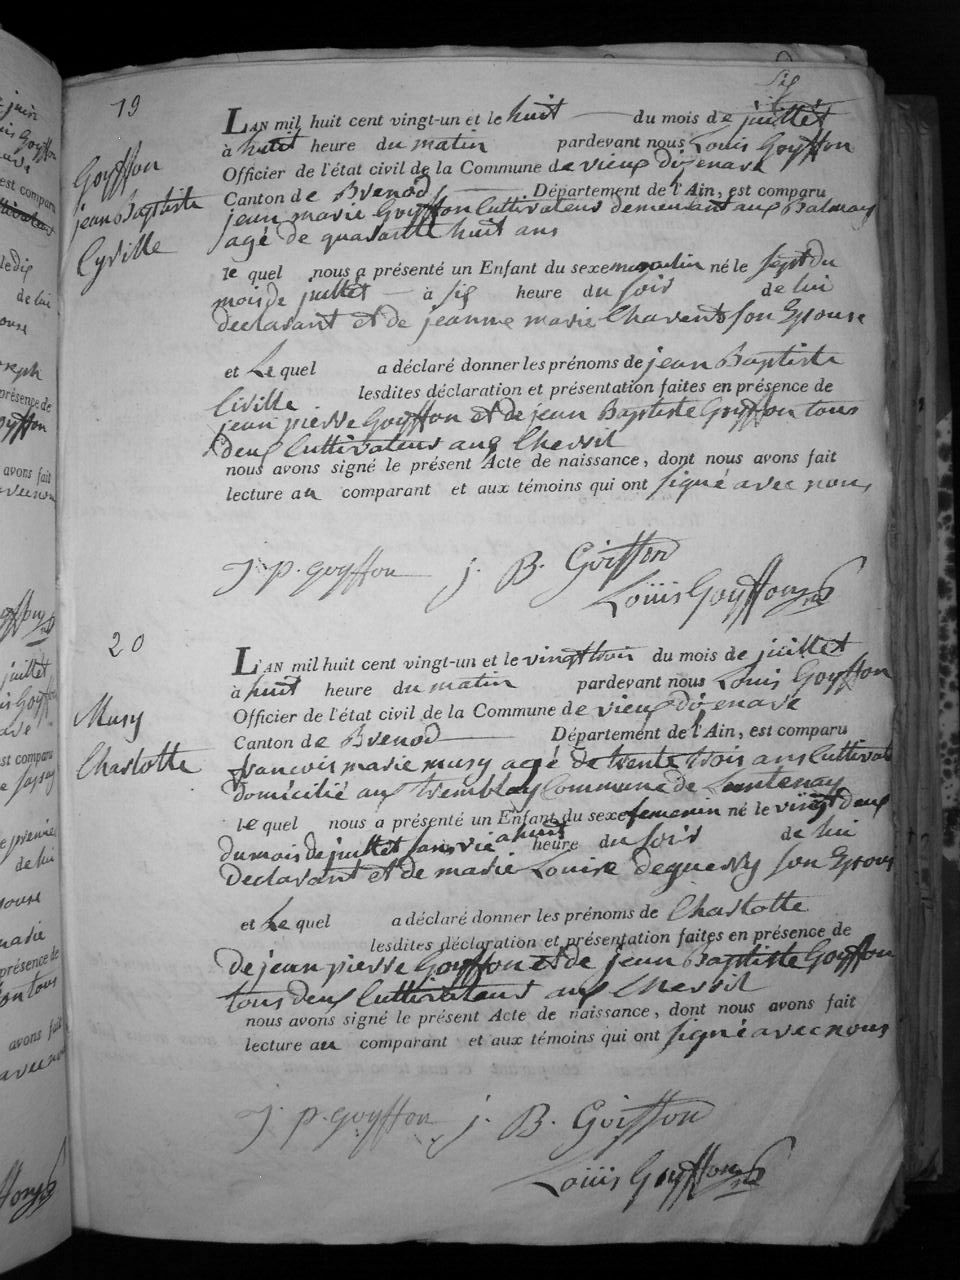 19
Goyffon
jean Baptiste
Cyrille
L'AN mil huit cent vingt-un et le huit du mois de juillet
à huit heure du matin pardevant nous Louis Goyffon
Officier de l'état civil de la Commune de vieux d'izenave
Canton de Brenod Département de l'Ain, est comparu
jean marie Goyffon Cultivateur demeurant aux Balmay
agé de quarante huit ans
le quel nous a présenté un Enfant du sexe masculin né le sept du
mois de juillet à six heure du soir de lui
declarant et de jeanne marie Charent son Epouse
et Le quel a déclaré donner les prénoms de jean Baptiste
Civille lesdites déclaration et présentation faites en présence de
jean pierre Goyffon et de jean Baptiste Goyffon tous
deux Cultivateurs aux Chevril
nous avons signé le présent Acte de naissance, dont nous avons fait
lecture au comparant et aux témoins qui ont signé avec nous
J. p. goyffon j. B. Goiffon
Louis Goyffon
20
Musy
Charlotte
L'AN mil huit cent vingt-un et le vingt trois du mois de juillet
à huit heure du matin pardevant nous Louis Goyffon
Officier de l'état civil de la Commune de vieux d'izenave
Canton de Brenod Département de l'Ain, est comparu
francois marie musy agé de trente trois ans Cultivat
domicilié aux tremblay Commune de Lantenay
le quel nous a présenté un Enfant du sexe femenin né le vingt deux
du mois de juillet sans vie a huit heure du soir de lui
Declarant et de marie Louise deguerry son Epouse
et Le quel a déclaré donner les prénoms de Charlotte
lesdites déclaration et présentation faites en présence de
De jean pierre Goyffon et de jean Baptiste Goyffon
tous deux Cultivateurs aux Chevril
nous avons signé le présent Acte de naissance, dont nous avons fait
lecture au comparant et aux témoins qui ont signé avec nous
J. p. goyffon j. B. Goiffon
Louis Goyffon